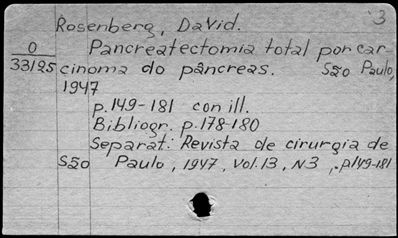 Rosenberg, David. 3
0 Pancreatectomia total por car-
33125 cinoma do pâncreas. São Paulo,
1947
p.149-181 con ill.
Bibliogr. p.178-180
Separat: Revista de cirurgia de
São Paulo, 1947, Vol.13, N3, p.149-181